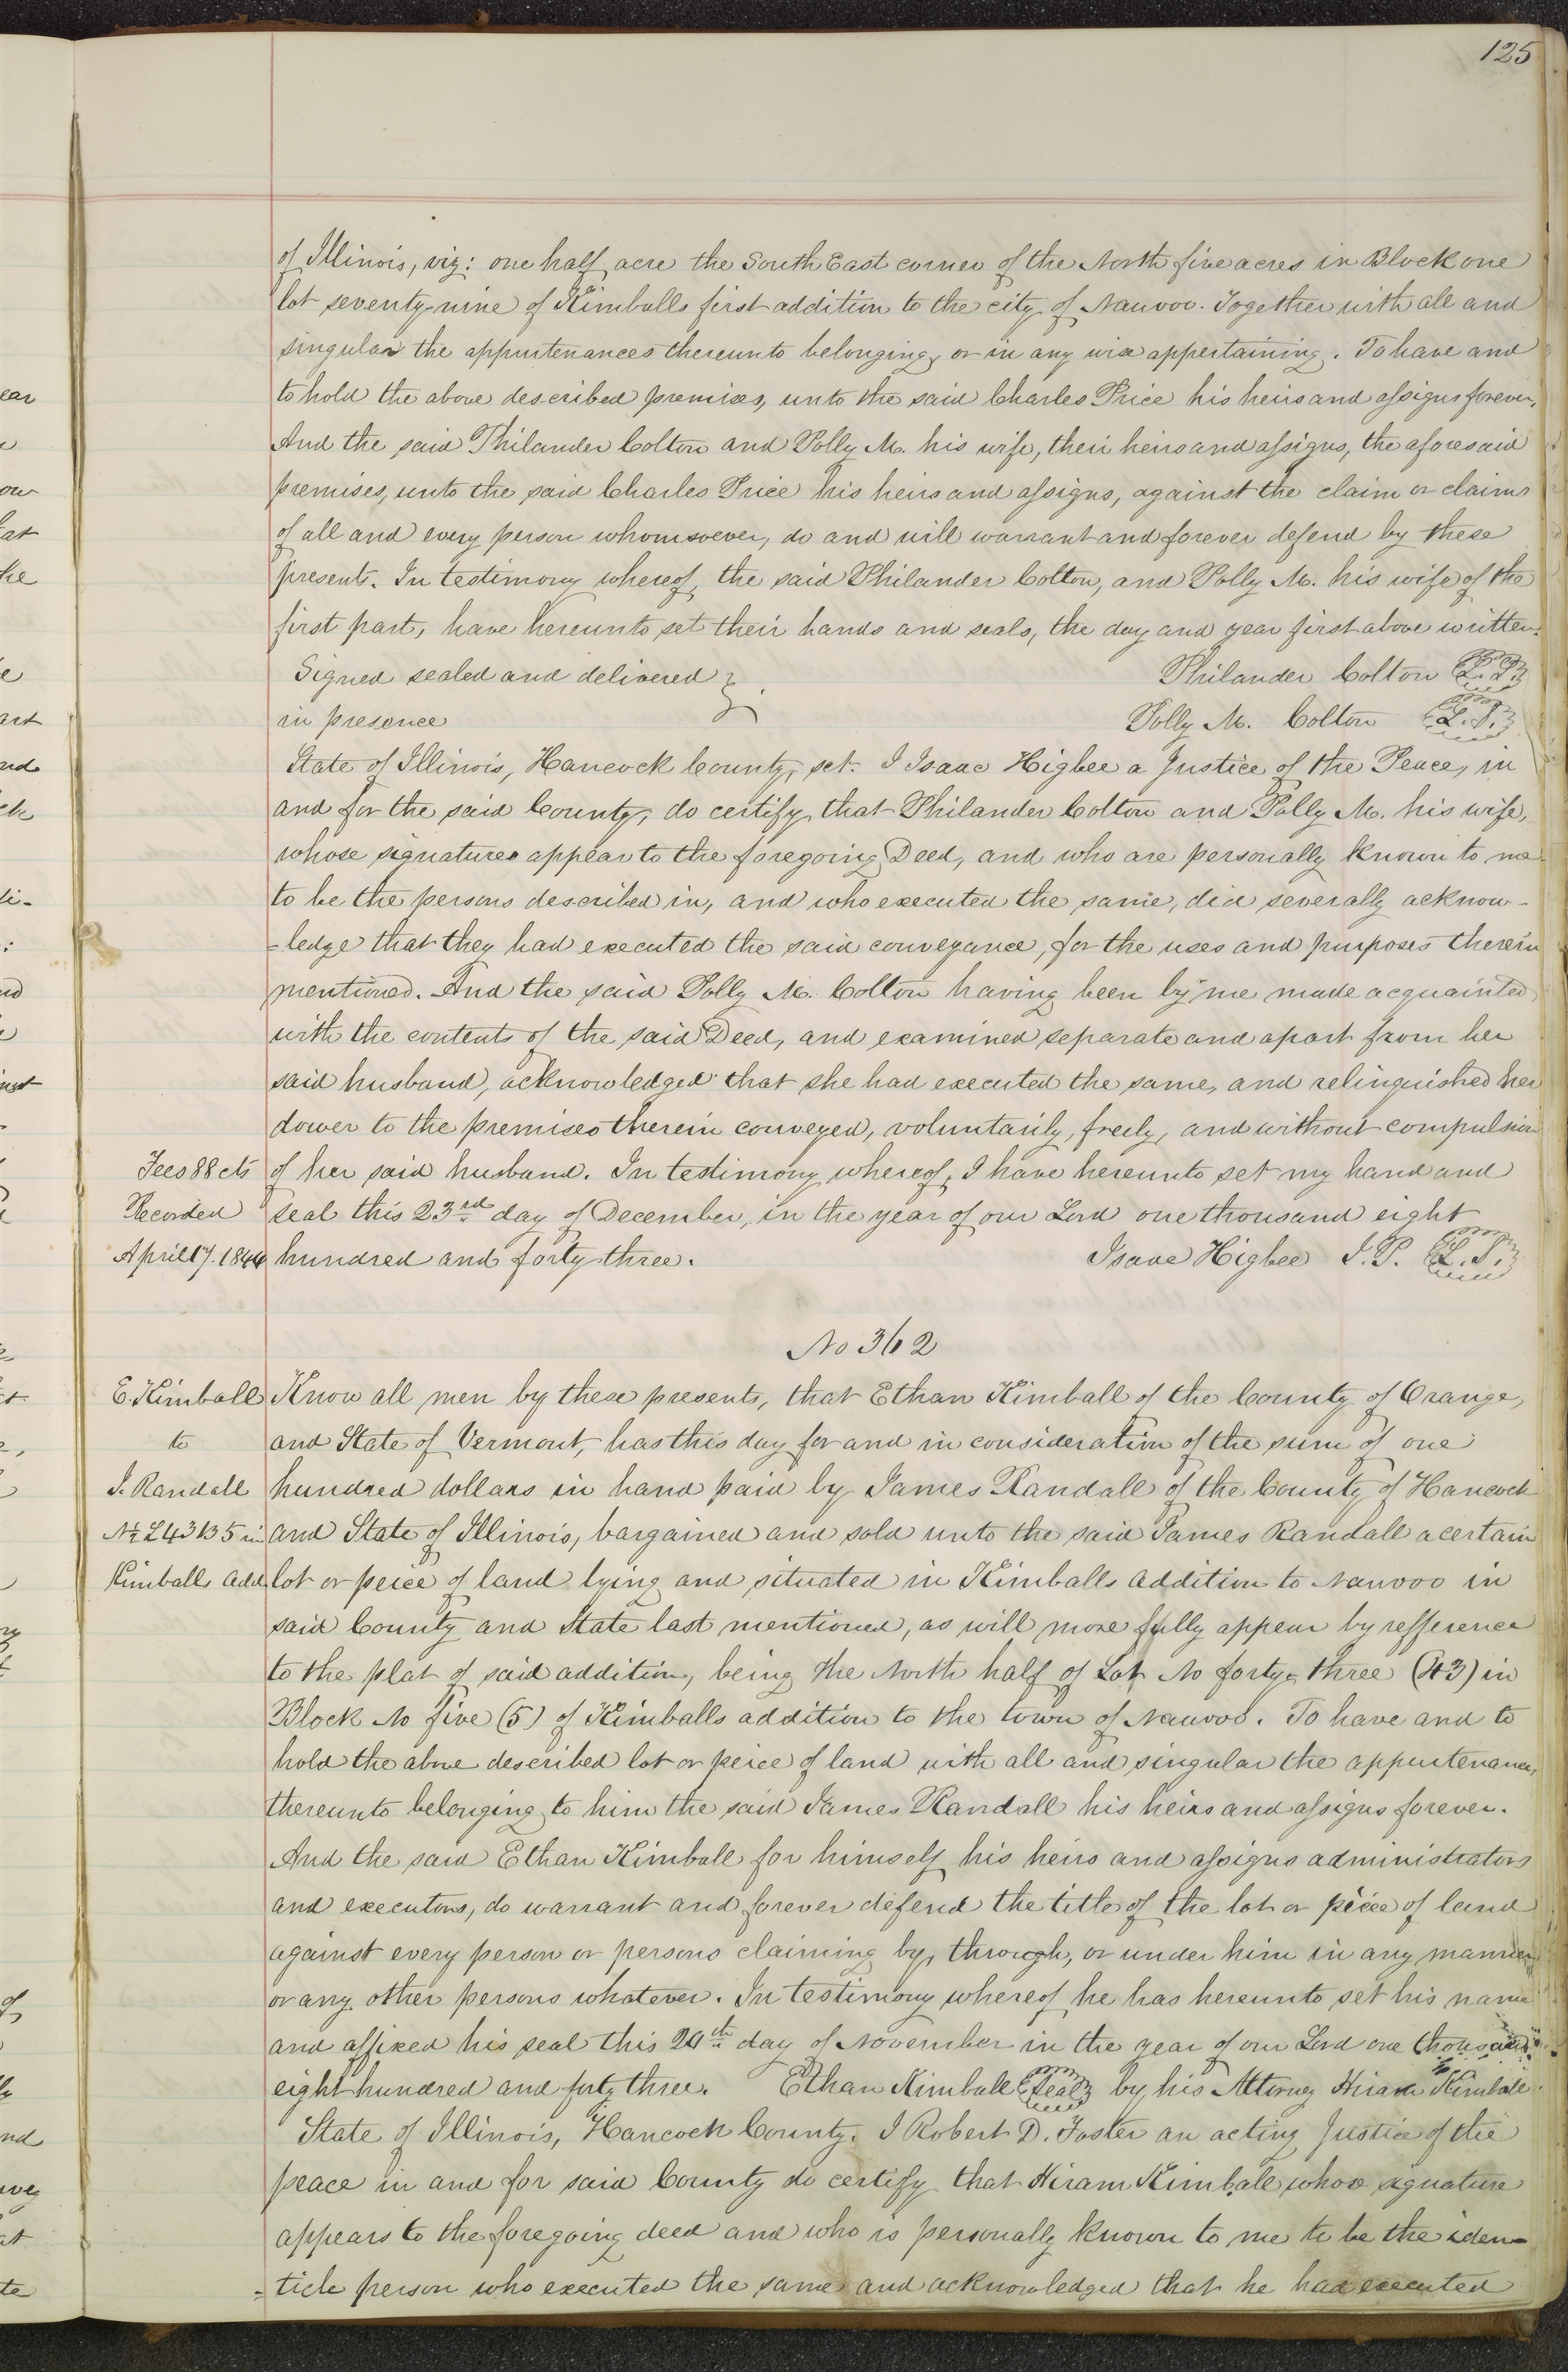 125
of Illinois, viz: one half acre the South East corner of the North five acres in Block one
lot seventy-nine of Kimballs first addition to the city of Nauvoo. Together with all and
singular the appurtenances thereunto belonging, or in any wise appertaining. To have and
to hold the above described premises, unto the said Charles Price his heirs and assigns forever,
And the said Philander Colton and Polly M. his wife, their heirs and assigns, the aforesaid
premises, unto the said Charles Price his heirs and assigns, against the claim or claims
of all and every person whomsoever, do and will warrant and forever defend by these
presents. In testimony whereof, the said Philander Colton, and Polly M. his wife of the
first part, have hereunto set their hands and seals, the day and year first above written.
Signed sealed and delivered } Philander Colton L.S.
in presence Polly M. Colton L.S.
State of Illinois, Hancock County, sct. I Isaac Higbee a Justice of the Peace, in
and for the said County, do certify, that Philander Colton and Polly M. his wife,
whose signatures appear to the foregoing Deed, and who are personally known to me
to be the persons described in, and who executed the same, did severally acknow-
=ledge that they had executed the said conveyance, for the uses and purposes therein
mentioned. And the said Polly M. Colton having been by me made acquainted
with the contents of the said Deed, and examined separate and apart from her
said husband, acknowledged that she had executed the same, and relinquished her
dower to the premises therein conveyed, voluntarily, freely, and without compulsion
Fees 88 cts of her said husband. In testimony whereof, I have hereunto set my hand and
Recorded seal this 23rd day of December, in the year of our Lord one thousand eight
April 17. 1844 hundred and forty three. Isaac Higbee J.P. L.S.
No 362
E. Kimball Know all men by these presents, that Ethan Kimball of the County of Orange,
to and State of Vermont, has this day for and in consideration of the sum of one
J. Randall hundred dollars in hand paid by James Randall of the County of Hancock
N½ L43 B5 in and State of Illinois, bargained and sold unto the said James Randall a certain
Kimballs Add. lot or peice of land lying and situated in Kimballs Addition to Nauvoo in
said County and State last mentioned, as will more fully appear by refference
to the plat of said addition, being the North half of Lot No forty-three (43) in
Block No five (5) of Kimballs addition to the town of Nauvoo. To have and to
hold the above described lot or peice of land with all and singular the appurtenances,
thereunto belonging to him the said James Randall his heirs and assigns forever.
And the said Ethan Kimball for himself his heirs and assigns administrators
and executors, do warrant and forever defend the title of the lot or peice of land
against every person or persons claiming by, through, or under him in any manner
or any other persons whatever. In testimony whereof he has hereunto set his name
and affixed his seal this 24th day of November in the year of our Lord one thousand
eight hundred and forty three. Ethan Kimball Seal by his Attorney Hiram Kimball.
State of Illinois, Hancock County. I Robert D. Foster an acting Justice of the
peace in and for said County do certify that Hiram Kimball whose signature
appears to the foregoing deed and who is personally known to me to be the iden-
=ticle person who executed the same and acknowledged that he had executed